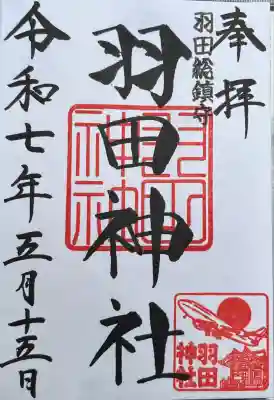 奉拝
羽田総鎮守
羽田神社
令和七年五月十五日
羽田神社
羽田
神社